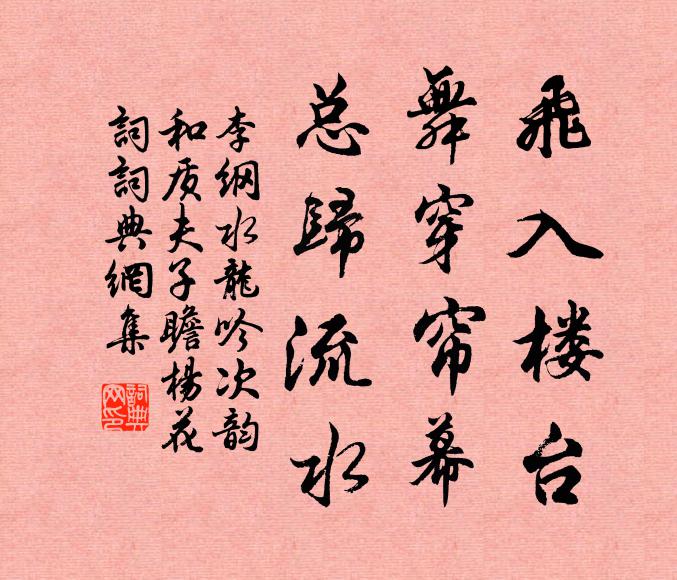 飛入楼台
舞穿帘幕
总歸流水
李纲水龍吟次韵
和质夫子瞻楊花
詞詞典網集
詞典
网印